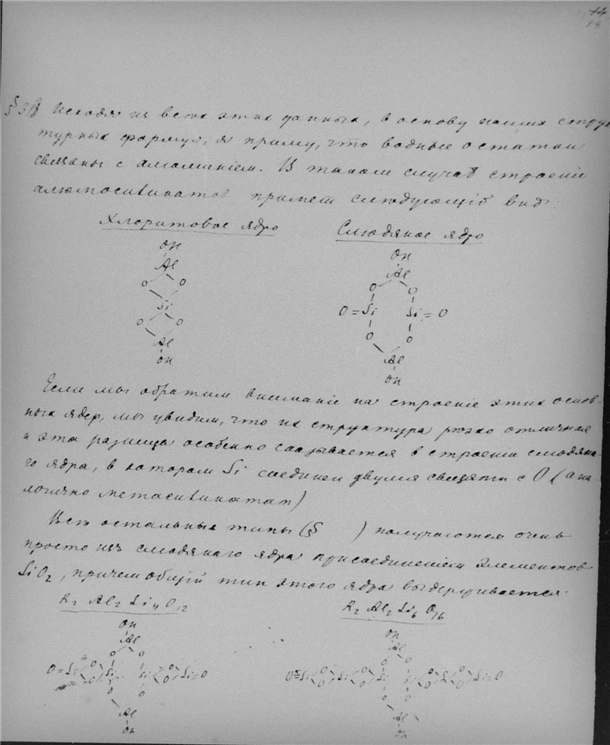 14
§ 3
Исходя из всех этих данных, в основу наших струк
турных формул, я приму, что водные остатки
связаны с алюминием. В таком случае строение
алюмосиликатов примет следующий вид:
Хлоритовое ядро Слюдяное ядро
OH OH
Al Al
O O O O
Si O=Si Si=O
O O O O
Al Al
OH OH
Если мы обратим внимание на строение этих основ
ных ядер, мы увидим, что их структура резко отлична
и эта разница особенно сказывается в строении слюдяна
го ядра, в котором Si соединен двумя связями с O (ана
логично метасиликатам)
Все остальные типы (§ ) получаются очень
просто из слюдянаго ядра присоединением элементов
SiO2, причем общий тип этого ядра выдерживается.
R2 Al2 Si4 O12 R2 Al2 Si6 O16
OH OH
Al Al
O O O O
O=Si O O Si Si O O Si=O O=Si O O Si O O Si Si O O Si O O Si=O
O O O O
Al Al
OH OH